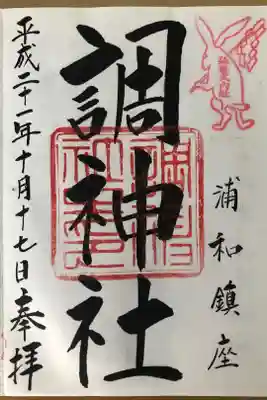 浦和鎮座
調神社
平成二十一年十月十七日奉拝